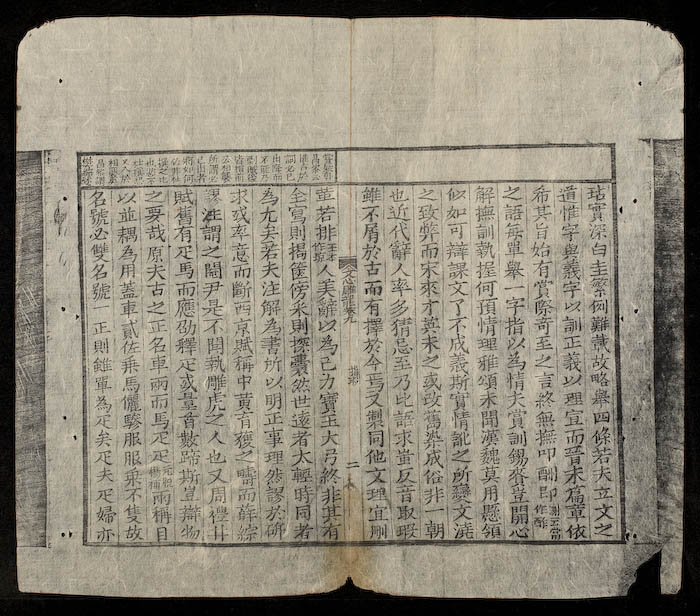 玷實深白圭繁例難載故略舉四條若夫立文之
道惟字與義字以訓正義以理宣而晉末篇章依
希其旨始有賞際奇至之言終無撫叩酬即謝云當作酢
之語每單舉一字指以為情夫賞訓錫賚豈關心
解撫訓執握何預情理雅頌未聞漢魏莫用懸領
似如可辯課文了不成義斯實情訛之所變文澆
之致弊而宋來才英未之或改舊染成俗非一朝
也近代辭人率多猜忌至乃比語求蚩反音取瑕
雖不屑於古而有擇於今焉又製同他文理宜刪
文心雕龍卷九 指瑕 二
革若排人美辭以為己力寶玉大弓終非其有
全寫則揭篋傍采則探囊然世遠者太輕時同者
為尤矣若夫注解為書所以明正事理然謬於研
求或率意而斷西京賦稱中黃育獲之疇而薛綜
謬注謂之閹尹是不聞執雕虎之人也又周禮井
賦舊有疋馬而應劭釋疋或量首數蹄斯豈辯物
之要哉原夫古之正名車兩而馬疋疋元脫楊補兩稱目
以並耦為用蓋車貳佐乘馬儷驂服服乘不隻故
名號必雙名號一正則雖單為疋矣疋夫疋婦亦